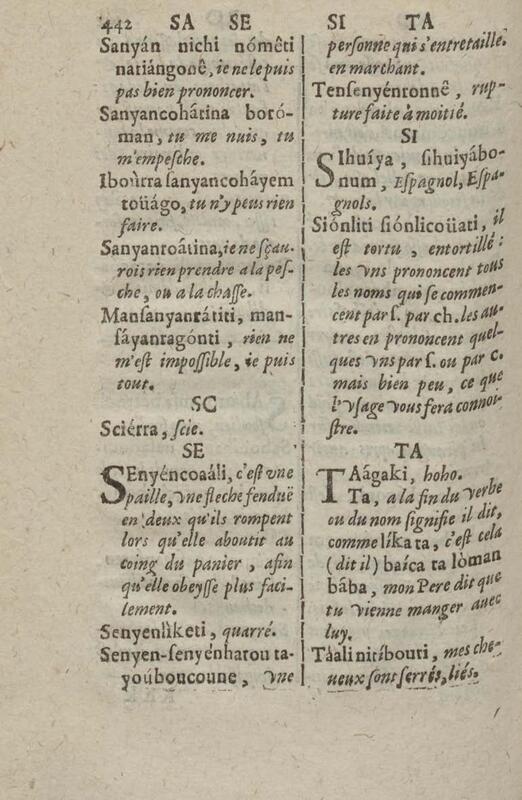 442 SA SE
Sanyán nichi nómêti
nariángonê, ie ne le puis
pas bien prononcer.
Sanyancohátina boró-
man, tu me nuis, tu
m'empesche.
Iboùrra ſanyancoháyem
toüágo, tu n'y peus rien
faire.
Sanyanroâtina, ie ne ſçau-
rois rien prendre a la peſ-
che, ou a la chaſſe.
Manſanyanrátiti, man-
ſáyanragónti, rien ne
m'eſt impoſſible, ie puis
tout.
SC
Sciérra, ſcie.
SE
SEnyéncoaáli, c'eſt vne
paille, vne fleche fenduë
en deux qu'ils rompent
lors qu'elle aboutit au
coing du panier, afin
qu'elle obeyſſe plus faci-
lement.
Senyenlìketi, quarré.
Senyen-ſenyénharou ta-
youboucoune, vne
SI TA
perſonne qui s'entretaille.
en marchant.
Tenſenyénronnê, rup-
ture faite à moitié.
SI
SIhuíya, ſihuiyábo-
num, Eſpagnol, Eſpa-
gnols.
Siónliti ſiónlicoüati, il
eſt tortu, entortillé:
les vns prononcent tous
les noms qui ſe commen-
cent par ſ. par ch. les au-
tres en prononcent quel-
ques vns par ſ. ou par c.
mais bien peu, ce que
l'vſage vous fera connoi-
ſtre.
TA
TAágaki, hoho.
Ta, a la fin du verbe
ou du nom ſignifie il dit,
comme líka ta, c'eſt cela
(dit il) baíca ta lòman
bâba, mon Pere dit que
tu vienne manger auec
luy.
Táali nitíbouti, mes che-
ueux ſont ſerrés, liés.